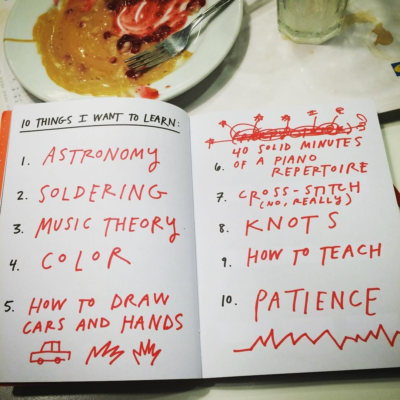 10 THINGS I WANT TO LEARN:
1. ASTRONOMY
2. SOLDERING
3. MUSIC THEORY
4. COLOR
5. HOW TO DRAW
CARS AND HANDS
40 SOLID MINUTES
6. OF A PIANO
REPERTOIRE
7. CROSS-STITCH
(NO, REALLY)
8. KNOTS
9. HOW TO TEACH
10. PATIENCE